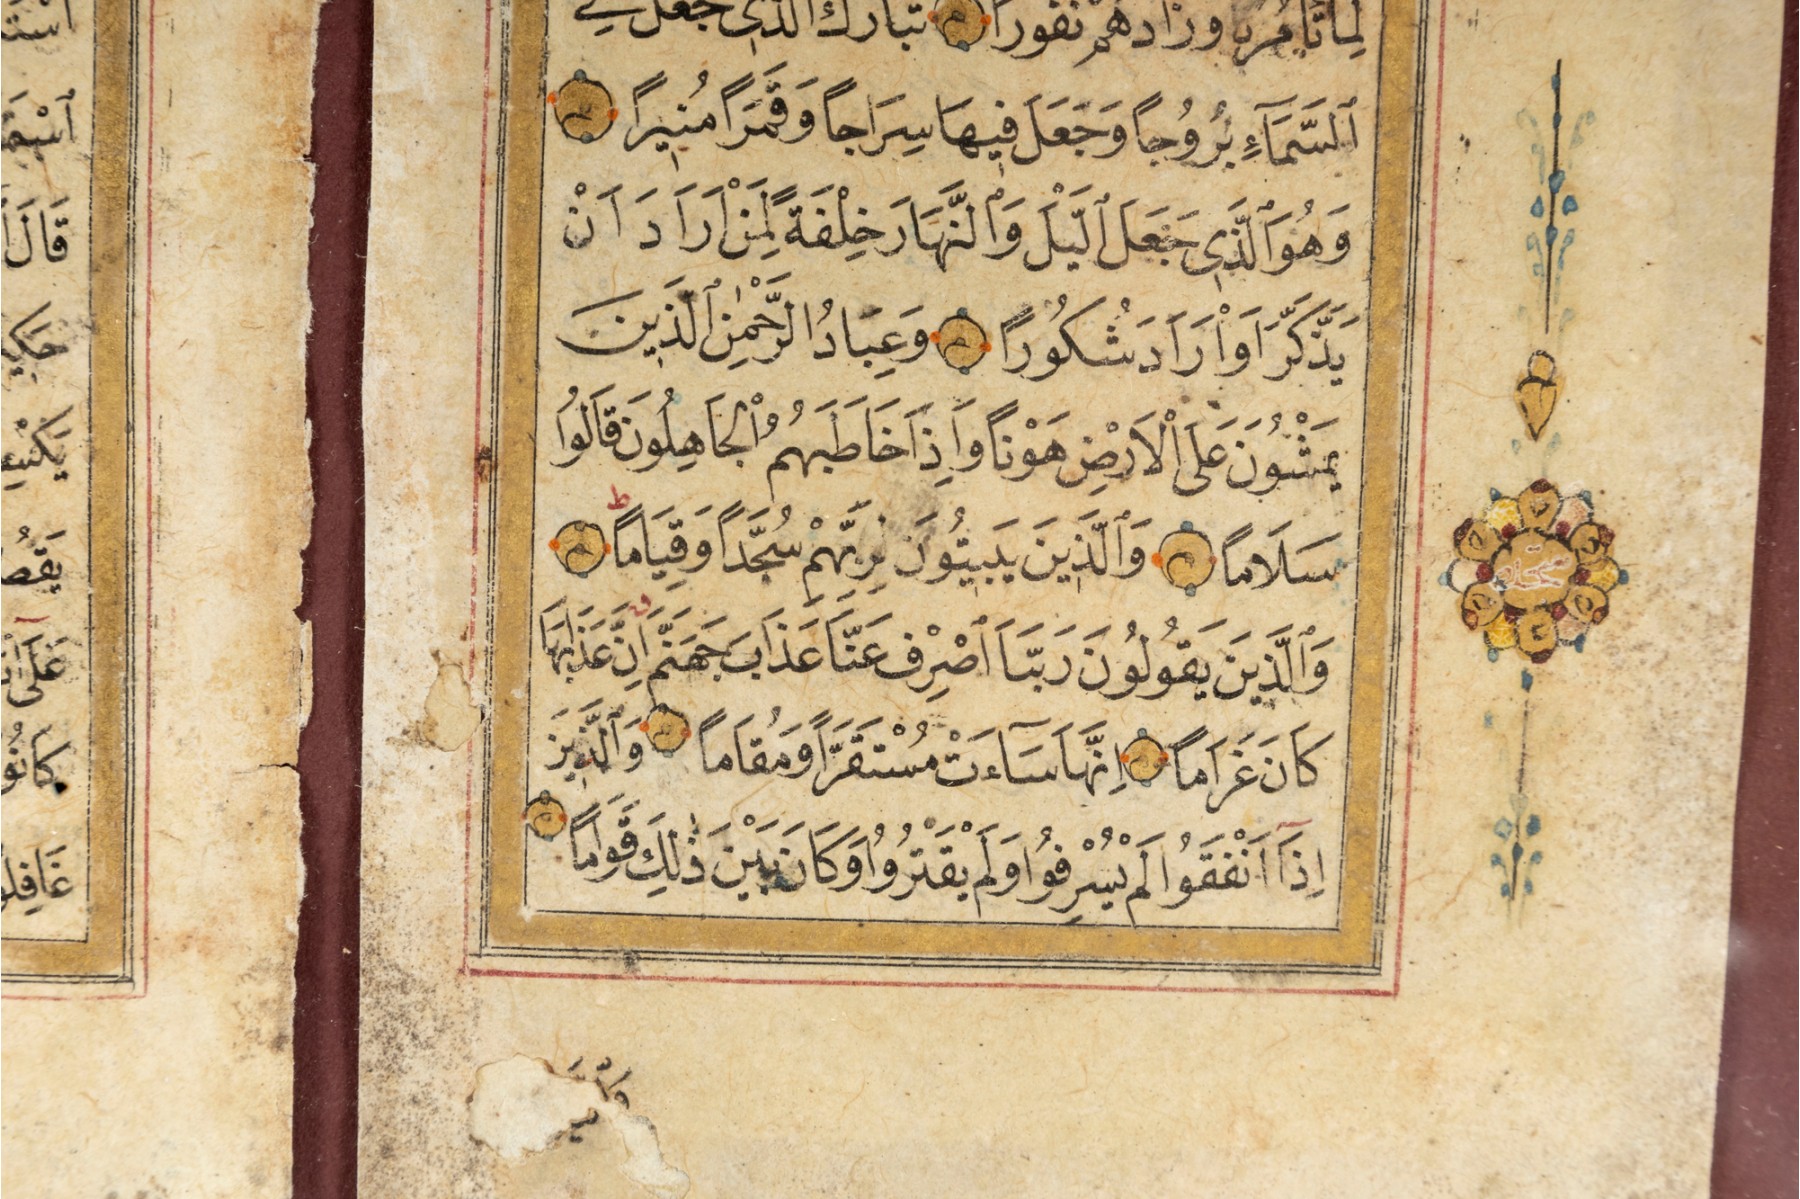 لِمَا تَأْمُرُنَا وَزَادَهُمْ نُفُورًا تَبَارَكَ الَّذِي جَعَلَ فِي
ٱلسَّمَآءِ بُرُوجاً وَجَعَلَ فِيهَا سِرَاجاً وَقَمَرًا مُنِيرًا
وَهُوَ ٱلَّذِي جَعَلَ ٱلَّيْلَ وَٱلنَّهَارَ خِلْفَةً لِمَنْ اَرَادَ اَنْ
يَذَّكَّرَ اَوْ اَرَادَ شُكُورًا وَعِبَادُ الرَّحْمٰنِ ٱلَّذِينَ
يَمْشُونَ عَلَى ٱلْاَرْضِ هَوْنًا وَاِذَا خَاطَبَهُمُ ٱلْجَاهِلُونَ قَالُوا
سَلَامًا وَٱلَّذِينَ يَبِيتُونَ لِرَبِّهِمْ سُجَّدًا وَقِيَامًا ط
وَٱلَّذِينَ يَقُولُونَ رَبَّنَا ٱصْرِفْ عَنَّا عَذَابَ جَهَنَّمَ اِنَّ عَذَابَهَا
كَانَ غَرَامًا اِنَّهَا سَآءَتْ مُسْتَقَرًّا وَمُقَامًا وَٱلَّذِينَ
اِذَآ اَنْفَقُوا لَمْ يُسْرِفُوا وَلَمْ يَقْتُرُوا وَكَانَ بَيْنَ ذٰلِكَ قَوَامًا